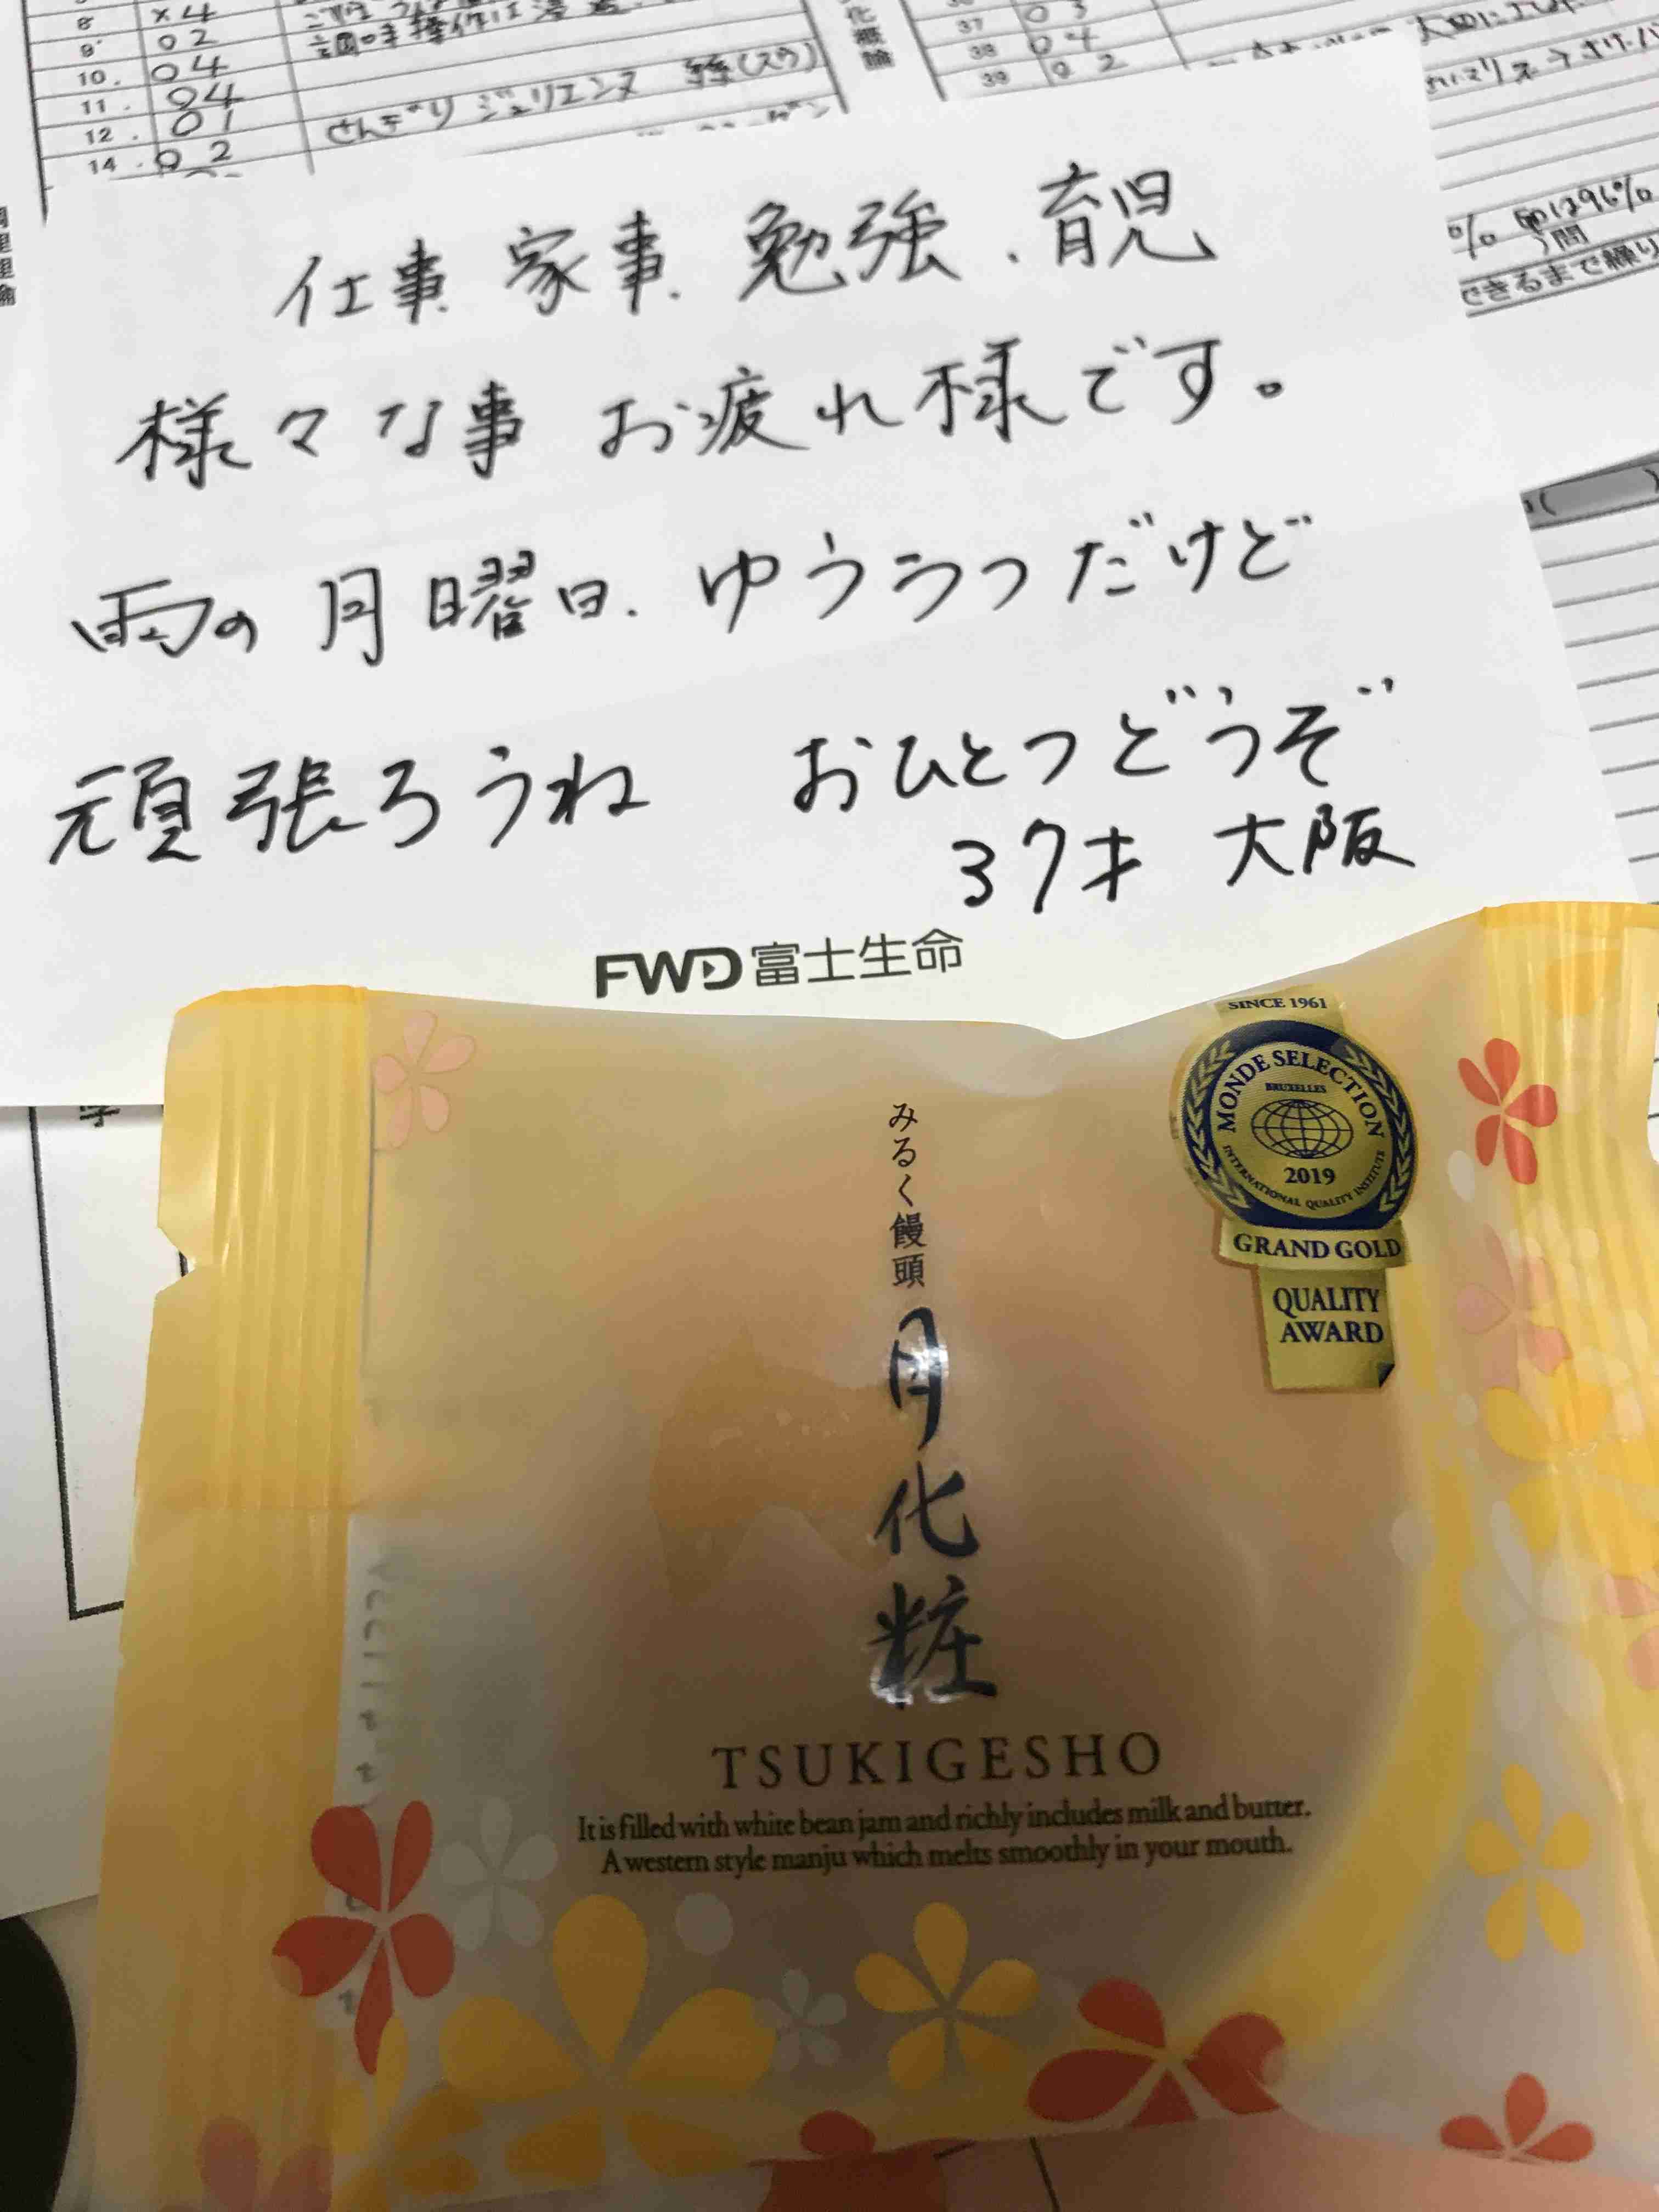 8 ×4
9 02
10. 04
11. 04
12. 01
14. 02
せんぎり ジュリエンヌ 絲(スウ)
化概論
37 03
38 04
39 02
大切に
卵は96%
できるまで繰り
仕事 家事 勉強、育児
様々な事 お疲れ様です。
雨の 月曜日、ゆううつだけど
頑張ろうね おひとつどうぞ
37才 大阪
FWD富士生命
SINCE 1961
MONDE SELECTION
BRUXELLES
2019
INTERNATIONAL QUALITY INSTITUTE
GRAND GOLD
QUALITY
AWARD
みるく饅頭
月化粧
TSUKIGESHO
It is filled with white bean jam and richly includes milk and butter.
A western style manju which melts smoothly in your mouth.